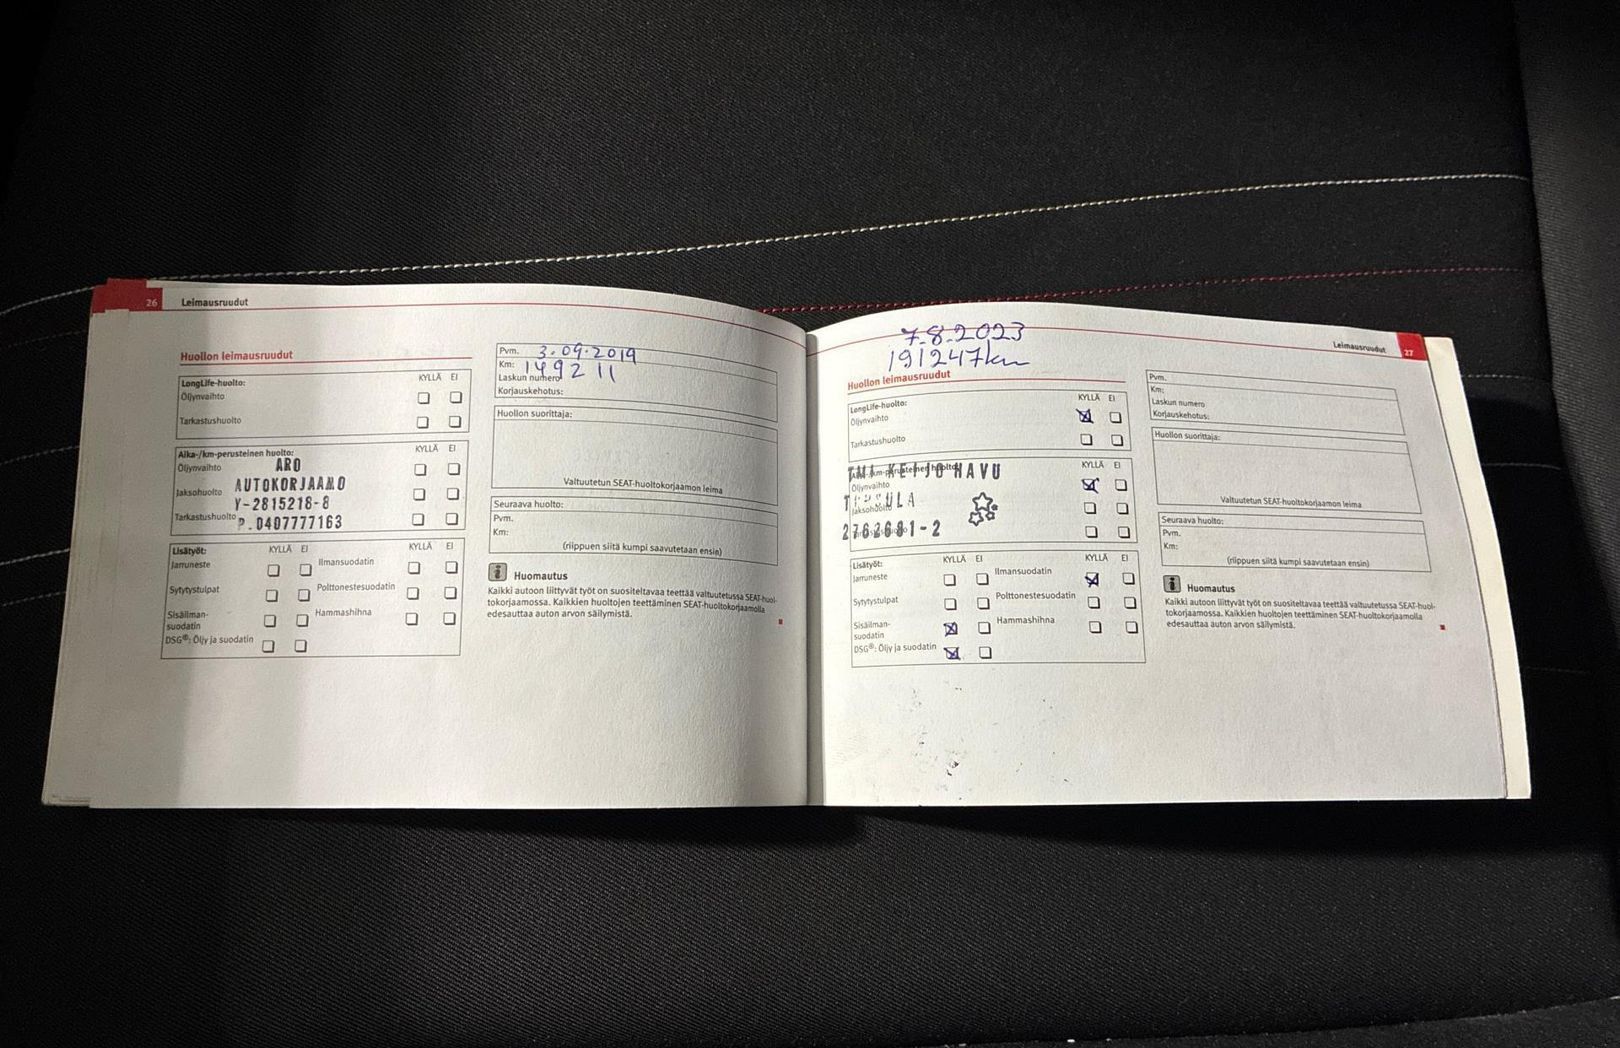 26 Leimausruudut
Huollon leimausruudut
LongLife-huolto: KYLLÄ EI
Öljynvaihto
Tarkastushuolto
Aika-/km-perusteinen huolto: KYLLÄ EI
Öljynvaihto
ARO
Jaksohuolto
AUTOKORJAAMO
Y-2815218-8
Tarkastushuolto
P.0407777163
Lisätyöt: KYLLÄ EI KYLLÄ EI
Jarruneste Ilmansuodatin
Sytytystulpat Polttonestesuodatin
Sisäilman-
suodatin Hammashihna
DSG®: Öljy ja suodatin
Pvm. 3.09.2019
Km: 149211
Laskun numero
Korjauskehotus:
Huollon suorittaja:
Valtuutetun SEAT-huoltokorjaamon leima
Seuraava huolto:
Pvm.
Km:
(riippuen siitä kumpi saavutetaan ensin)
Huomautus
Kaikki autoon liittyvät työt on suositeltavaa teettää valtuutetussa SEAT-huol-
tokorjaamossa. Kaikkien huoltojen teettäminen SEAT-huoltokorjaamolla
edesauttaa auton arvon säilymistä.
Leimausruudut 27
7.8.2023
191247km
Huollon leimausruudut
LongLife-huolto: KYLLÄ EI
Öljynvaihto
Tarkastushuolto
KYLLÄ EI
TMI KEIJO HAVU
Öljynvaihto
Jaksohuolto
2762681-2
Lisätyöt: KYLLÄ EI KYLLÄ EI
Jarruneste Ilmansuodatin
Sytytystulpat Polttonestesuodatin
Sisäilman-
suodatin Hammashihna
DSG®: Öljy ja suodatin
Pvm.
Km:
Laskun numero
Korjauskehotus:
Huollon suorittaja:
Valtuutetun SEAT-huoltokorjaamon leima
Seuraava huolto:
Pvm.
Km:
(riippuen siitä kumpi saavutetaan ensin)
Huomautus
Kaikki autoon liittyvät työt on suositeltavaa teettää valtuutetussa SEAT-huol-
tokorjaamossa. Kaikkien huoltojen teettäminen SEAT-huoltokorjaamolla
edesauttaa auton arvon säilymistä.